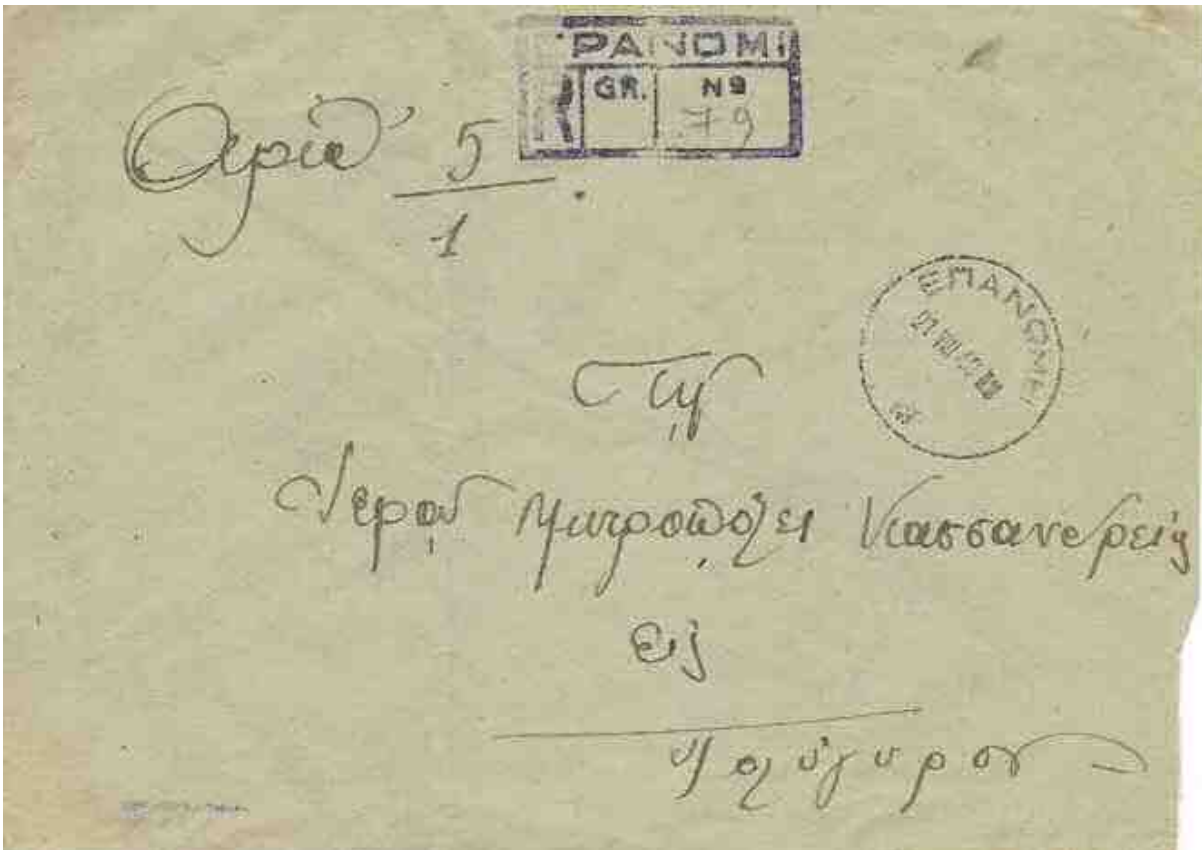 PANOMI
R GR. Nº
79
Αριθ 5
1
ΕΠΑΝΩΜΕΙ
Τῇ
Ἱερᾷ Μητροπόλει Κασσανδρείς
Εἰς
Πολύγυρον